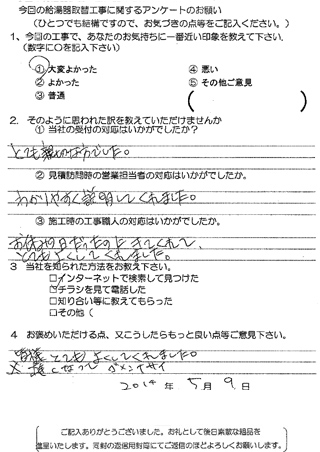 今回の給湯器取替工事に関するアンケートのお願い
(ひとつでも結構ですので、お気づきの点等をご記入ください。)
1、今回の工事で、あなたのお気持ちに一番近い印象を教えて下さい。
(数字に○を記入下さい)
①大変よかった ④悪い
②よかった ⑤その他ご意見
③普通 ( )
2. そのように思われた訳を教えていただけませんか
① 当社の受付の対応はいかがでしたか?
とても親切な方でした。
② 見積訪問時の営業担当者の対応はいかがでしたか。
わかりやすく説明してくれました。
③ 施工時の工事職人の対応はいかがでしたか。
お休み日だったのにきてくれて、
とてもよくしてくれました。
3 当社を知られた方法をお教え下さい。
□インターネットで検索して見つけた
□チラシを見て電話した
□知り合い等に教えてもらった
□その他(
4 お褒めいただける点、又こうしたらもっと良い点等ご意見下さい。
皆様とてもよくしてくれました。
遅くなってゴメンナサイ
2014年 5月 9日
ご記入ありがとうございました。お礼として後日素敵な粗品を
進呈いたします。同封の返信用封筒にてご返信のほどよろしくお願いします。